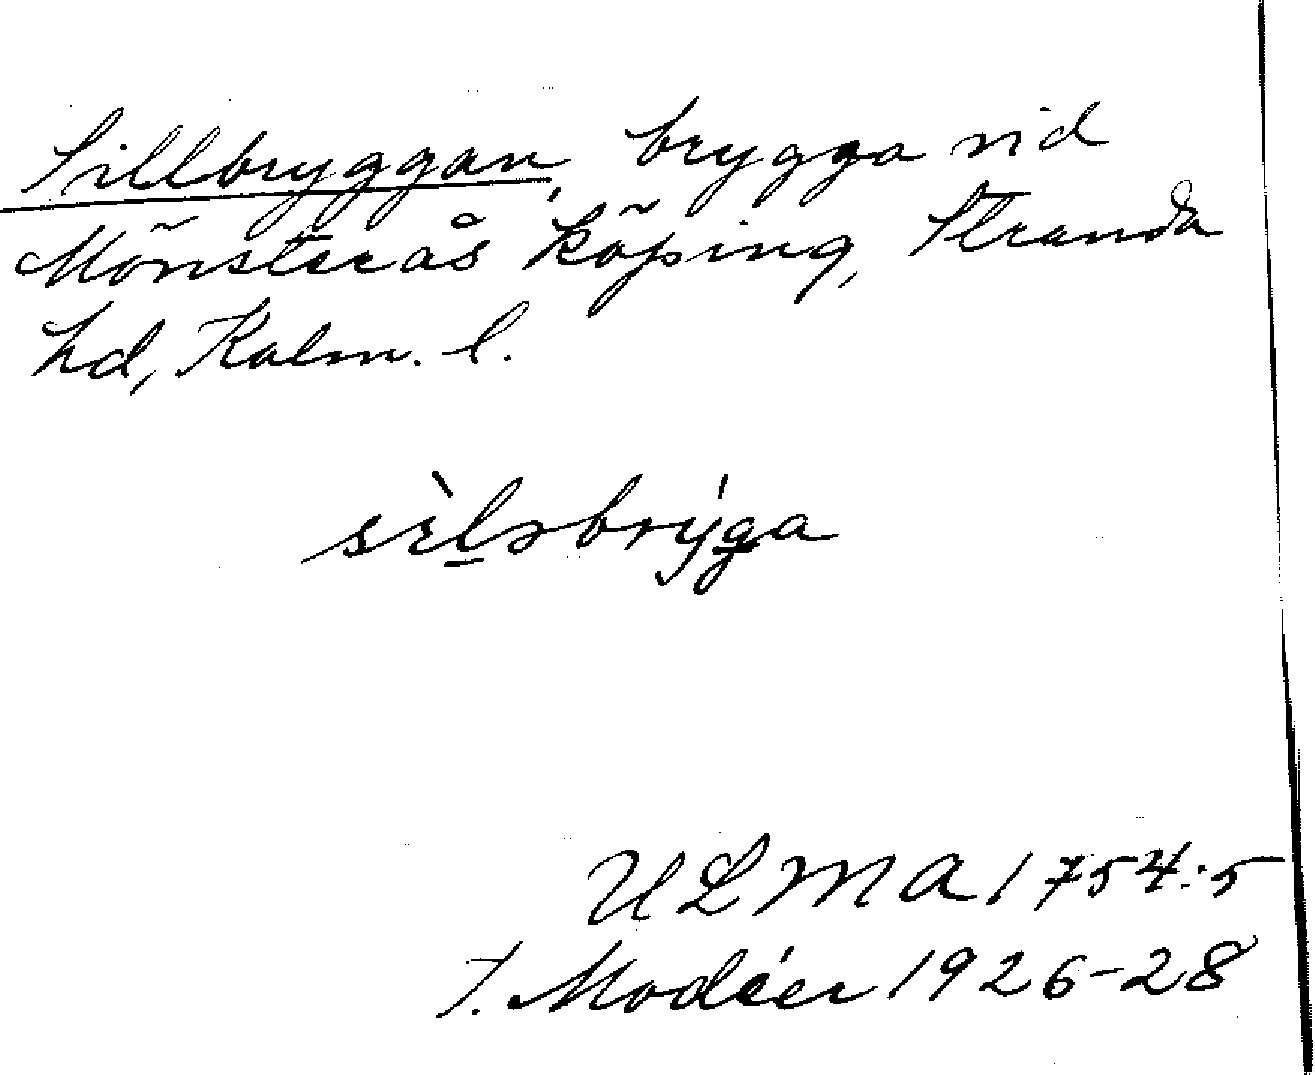 Sillbryggan, brygga vid
Mönsterås köping, Stranda
hd, Kalm. l.
sìl̠ɔbrýga
ULMA 1754:5
I. Modéer 1926-28